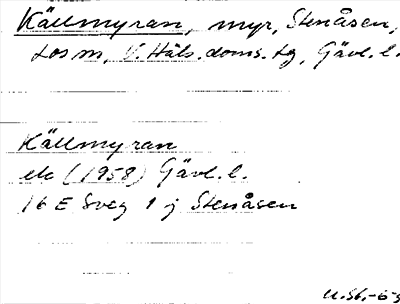 Källmyran, myr, Stenåsen,
Los sn, V. Häls. doms. tg, Gävl. l.
Källmyran
ek (1958) Gävl. l.
16 E Sveg 1 j Stenåsen